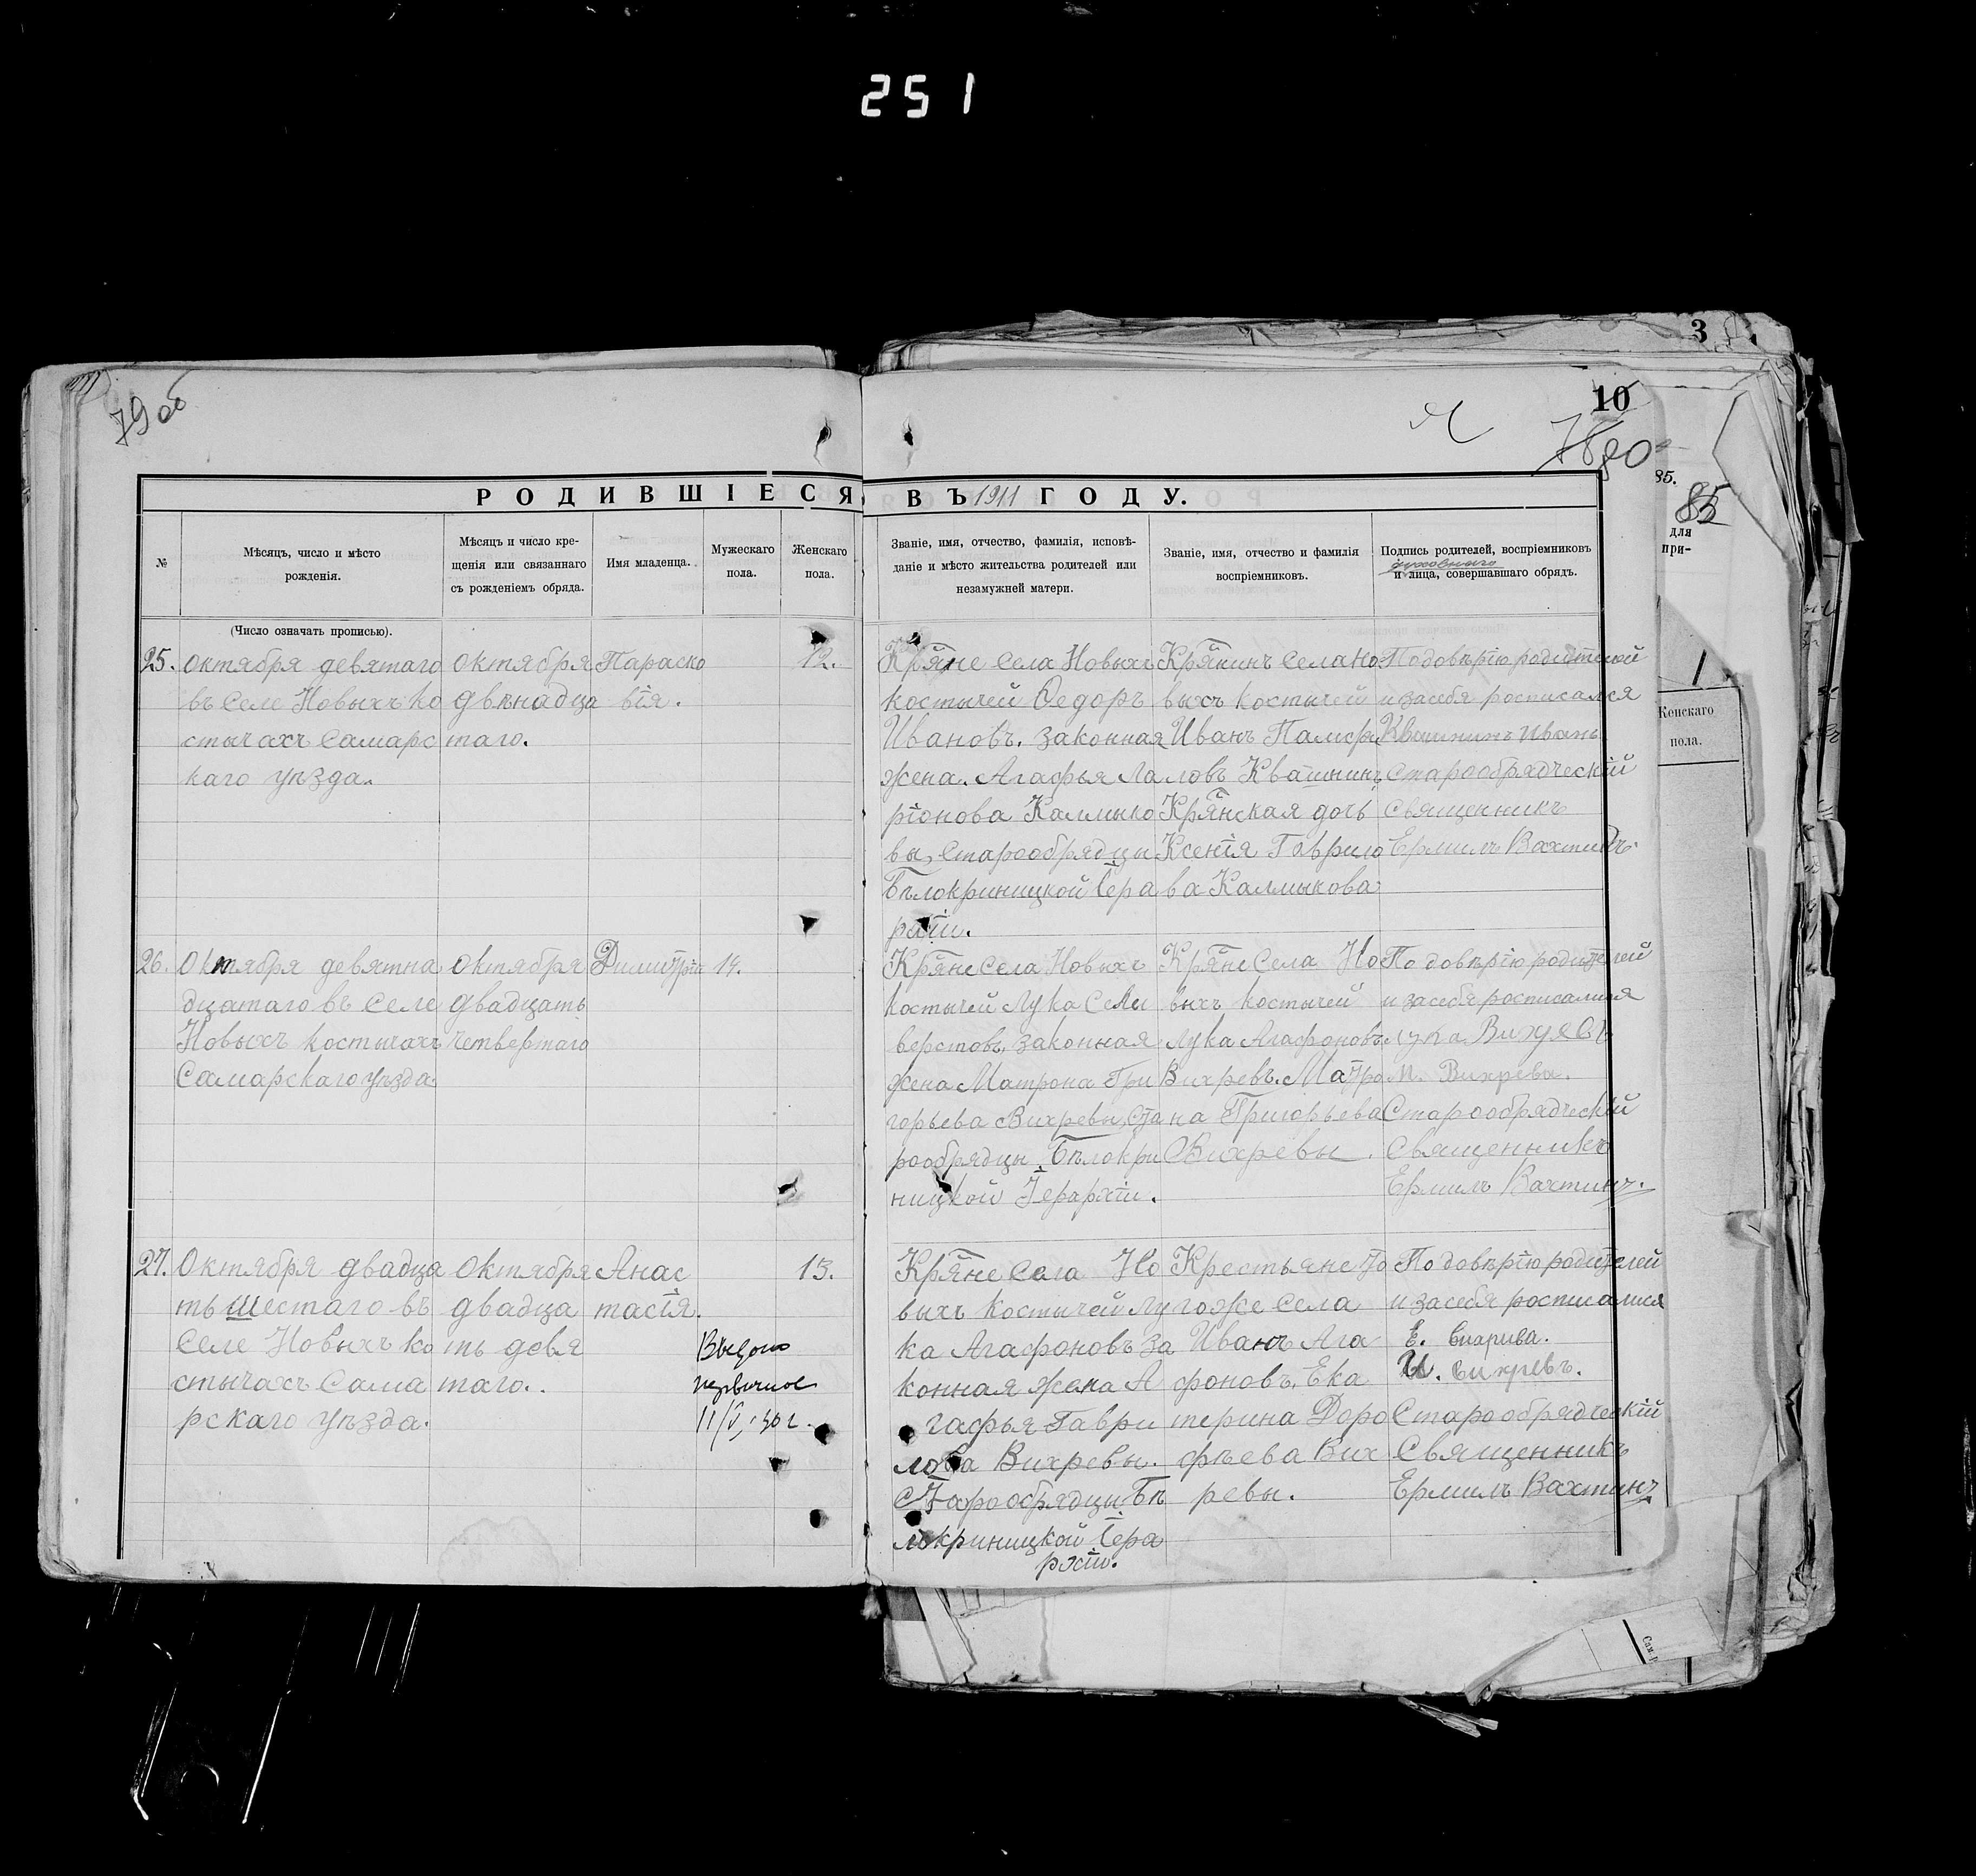 251
3
79 об
10
80
85.
85
РОДИВШІЕСЯ ВЪ 1911 ГОДУ.
№
Мѣсяцъ, число и мѣсто
рожденія.
Мѣсяцъ и число кре-
щенія или связаннаго
съ рожденіемъ обряда.
Имя младенца.
Мужескаго
пола.
Женскаго
пола.
Званіе, имя, отчество, фамилія, исповѣ-
даніе и мѣсто жительства родителей или
незамужней матери.
Званіе, имя, отчество и фамилія
воспріемниковъ.
Подпись родителей, воспріемниковъ
духовнаго
и лица, совершавшаго обрядъ.
(Число означать прописью).
для
при-
Женскаго
пола.
25.
Октября девятаго
въ селе Новыхъ ко
стычахъ Самарс
каго уѣзда.
Октября
двѣнадца
таго.
Параско
вія.
12.
Кряне села Новыхъ
костычей Ѳедоръ
Ивановъ. законная
жена. Агафья Ла
ріонова Калмыко
вы, Старообрядцы
Бѣлокриницкой Іера
рхіи.
Крянинъ села Но
выхъ костычей
Иванъ Памфи
ловъ Квашнинъ
Крянская дочь
Ксенія Гаврило
ва Калмыкова
По довѣрію родителей
и засебя росписался
Квашнинъ Иванъ
Старообрядческій
Священникъ
Ермилъ Вахтинъ.
26.
Октября девятна
дцатаго въ селе
Новыхъ костычахъ
Самарскаго уѣзда.
Октября
двадцать
четвертаго
Димитрія
14.
Кряне села Новыхъ
костычей Лука Сели
верстовъ, законная
жена Матрона Гри
горьева Вихревы, Ста
рообрядцы Бѣлокри
ницкой Іерархіи.
Кряне села Но
выхъ костычей
Лука Агафоновъ
Вихревъ. Матро
на Григорьева
Вихревы.
По довѣрію родителей
и засебя росписалися
Лука
М. Вихрева.
Старообрядческій
Священникъ
Ермилъ Вахтинъ.
27.
Октября двадца
ть шестаго въ
селе Новыхъ ко
стычахъ Сама
рскаго уѣзда.
Октября
двадца
ть девя
таго.
Анас
тасія.
13.
первичное
Кряне села Но
выхъ костычей Лу
ка Агафоновъ за
конная жена А
гафья Гаври
лова Вихревы.
Старообрядцы Бѣ
локриницкой Іера
рхіи.
Крестьяне то
гоже села
Иванъ Ага
фоновъ, Ека
терина Доро
фѣева Вих
ревы.
По довѣрію родителей
и засебя росписалися
Е. Вихрива.
И. Вихревъ.
Старообрядческій
Священникъ
Ермилъ Вахтинъ